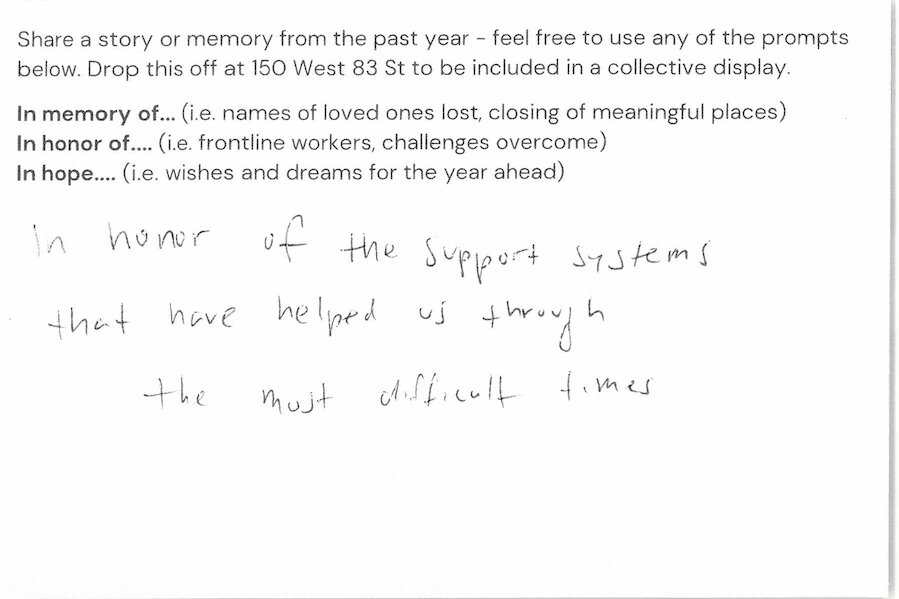 Share a story or memory from the past year - feel free to use any of the prompts
below. Drop this off at 150 West 83 St to be included in a collective display.
In memory of... (i.e. names of loved ones lost, closing of meaningful places)
In honor of.... (i.e. frontline workers, challenges overcome)
In hope.... (i.e. wishes and dreams for the year ahead)
In honor of the support systems
that have helped us through
the most difficult times